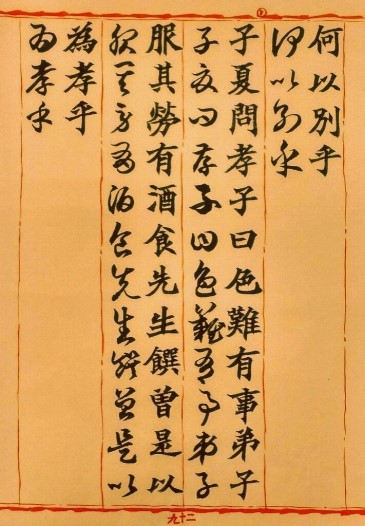 何以別乎
何以別乎
子夏問孝子曰色難有事弟子
子夏問孝子曰色難有事弟子
服其勞有酒食先生饌曾是以
服其勞有酒食先生饌曾是以
為孝乎
為孝乎
九十二